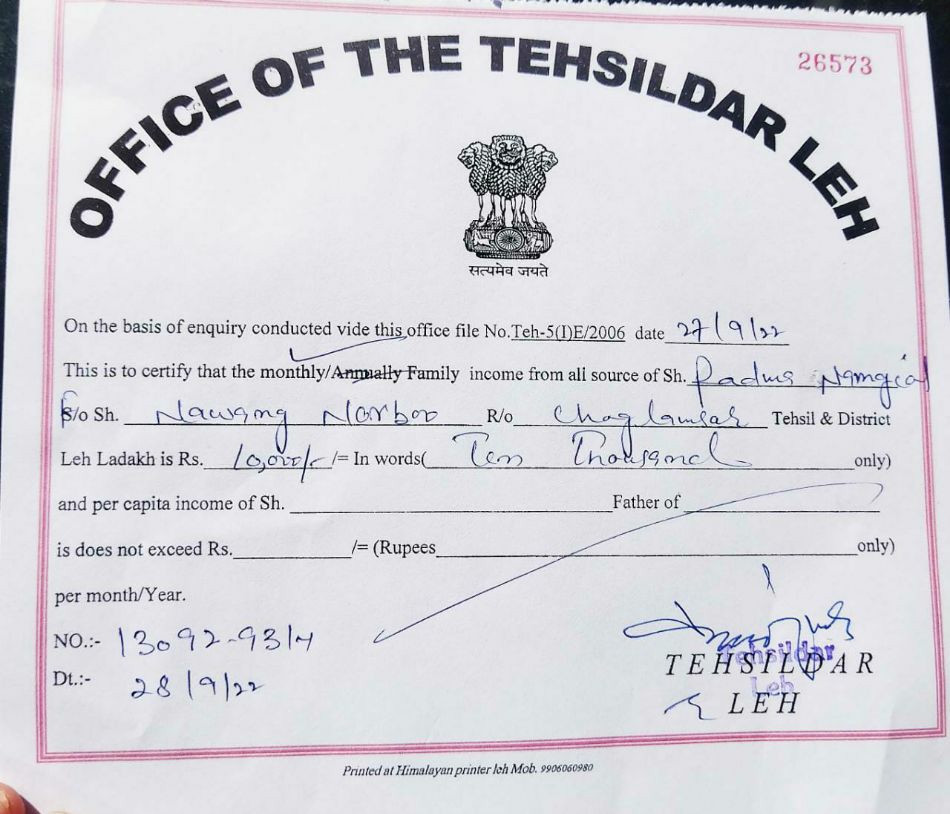 26573
OFFICE OF THE TEHSILDAR LEH
सत्यमेव जयते
On the basis of enquiry conducted vide this office file No.Teh-5(I)E/2006 date 27/9/22
This is to certify that the monthly/Annually Family income from all source of Sh. Padma Namgial
S/o Sh. Nawang Norboo R/o Choglamsar Tehsil & District
Leh Ladakh is Rs. 10,000/- /= In words( Ten Thousand only)
and per capita income of Sh. Father of
is does not exceed Rs. /= (Rupees only)
per month/Year.
NO.:- 13092-93/
Dt.:- 28/9/22
Tehsildar
Leh
TEHSILDAR
LEH
Printed at Himalayan printer leh Mob. 9906060980